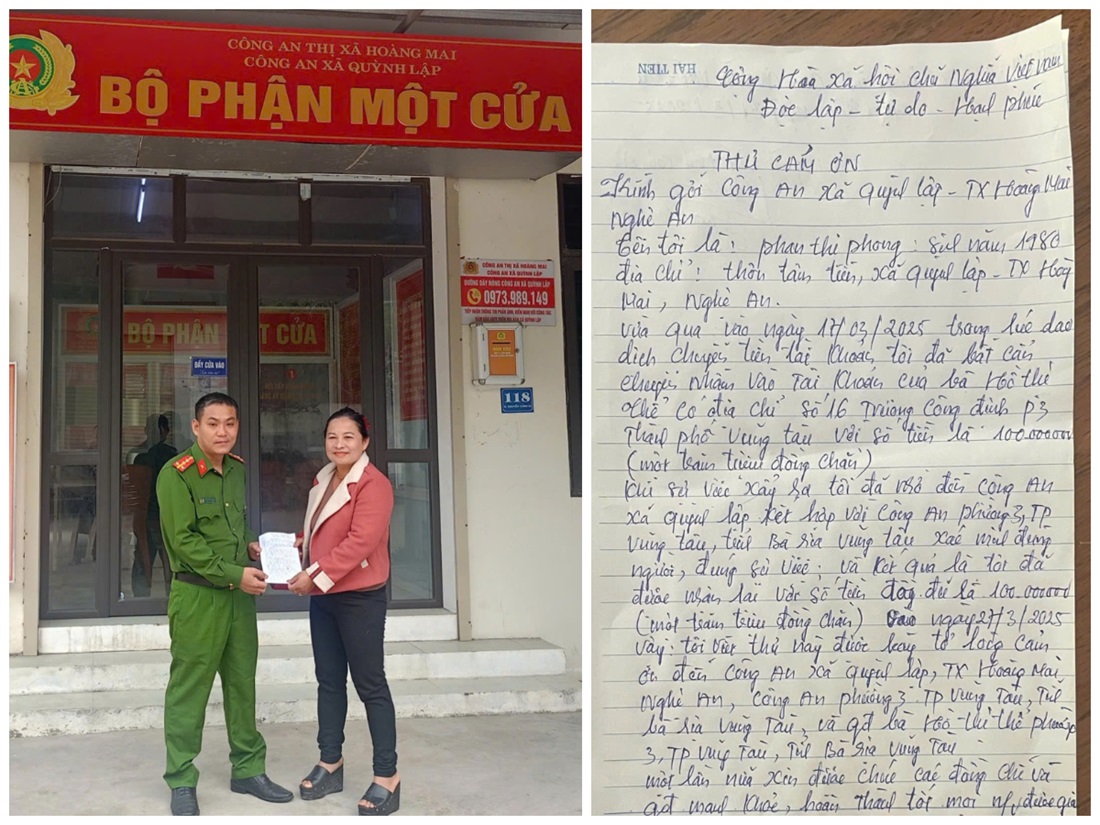 CÔNG AN THỊ XÃ HOÀNG MAI
CÔNG AN XÃ QUỲNH LẬP
BỘ PHẬN MỘT CỬA
BỘ PHẬN MỘT CỬA
ĐẨY CỬA VÀO
1
CÔNG AN THỊ XÃ HOÀNG MAI
CÔNG AN XÃ QUỲNH LẬP
ĐƯỜNG DÂY NÓNG CÔNG AN XÃ QUỲNH LẬP
0973.989.149
118
HẢI TIẾN
Cộng Hoà xã hội chủ Nghĩa Việt Nam
Độc lập - tự do - Hạnh phúc
THƯ CẢM ƠN
Kính gửi Công An xã Quỳnh lập - TX Hoàng Mai
Nghệ An
tên tôi là: phan thị phong: sinh năm 1980
địa chỉ: thôn tâm tiến, xã quỳnh lập - TX Hoàng
Mai, Nghệ An.
vừa qua vào ngày 17/03/2025 trong lúc dao
dịch chuyển tiền tài khoản, tôi đã bất cẩn
chuyển nhầm vào Tài khoản của bà Hồ thị
thể có địa chỉ số 16 Trương Công định P3
Thành phố vũng tàu với số tiền là 100.000000
(một trăm triệu đồng chẵn)
khi sự việc xảy ra tôi đã nhờ đến công An
xã quỳnh lập kết hợp với Công An phường 3, TP
vũng tàu, tỉnh Bà Rịa vũng tàu xác minh đúng
người, đúng sự việc; và kết quả là tôi đã
được nhận lại với số tiền đầy đủ là 100.000000
(một trăm triệu đồng chẵn) ngày 27/3/2025
vậy: tôi viết thư này được bày tỏ lòng cảm
ơn đến công An xã quỳnh lập, TX Hoàng Mai,
Nghệ An, Công An phường 3. TP vũng Tàu, Tỉnh
bà Rịa vũng Tàu, và gđ bà Hồ thị thể phường
3, TP vũng Tàu, Tỉnh Bà Rịa vũng Tàu
một lần nữa xin được chúc các đồng chí và
gđ mạnh khoẻ, hoàn thành tốt mọi được